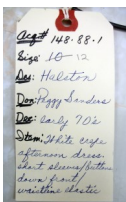 Acq# 148.88.1
Size: 10-12
Des: Halston
Don: Peggy Sanders
Dec: early 70's
Item: White crepe
afternoon dress.
short sleeves/button
down front/
waistline elastic